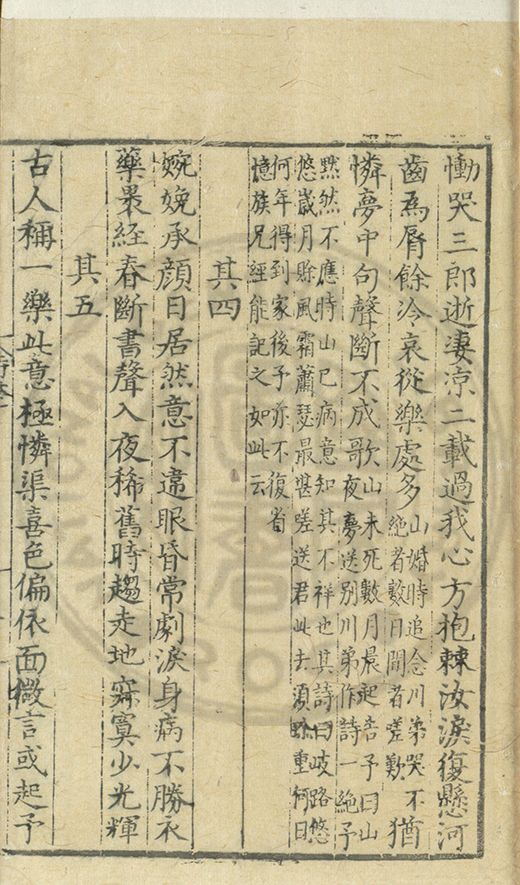 慟哭三郎逝凄涼二載過我心方抱棘汝淚復懸河
齒爲脣餘冷哀從樂處多山婚時追念川弟哭不
絶者數日聞者嗟歎猶
憐夢中句聲斷不成歌山未死數月晨起告予曰山
夜夢送別川弟作詩一絶予
黙然不應時山已病意知其不祥也其詩曰岐路悠
悠歲月賖風霜蕭瑟最堪嗟送君此去須珍重何日
何年得到家後予亦不復省
憶族兄經能記之如此云
其四
婉娩承顔日居然意不違眼昏常劇淚身病不勝衣
藥裹經春斷書聲入夜稀舊時趨走地寂寞少光輝
其五
古人稱一樂此意極憐渠喜色偏依面微言或起予